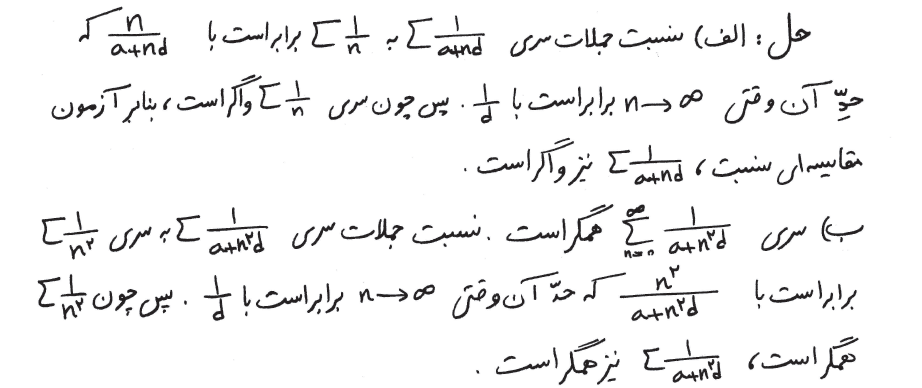 حل: الف) نسبت جملات سری Σ 1/(a+nd) به Σ 1/n برابر است با n/(a+nd) که
حدِّ آن وقتی n → ∞ برابر است با 1/d. پس چون سری Σ 1/n واگراست، بنابر آزمون
مقایسه‌ای نسبت، Σ 1/(a+nd) نیز واگراست.
ب) سری Σ_{n=0}^{∞} 1/(a+n²d) همگراست. نسبت جملات سری Σ 1/(a+n²d) به سری Σ 1/n²
برابر است با n²/(a+n²d) که حدّ آن وقتی n → ∞ برابر است با 1/d. پس چون Σ 1/n²
همگراست، Σ 1/(a+n²d) نیز همگراست.